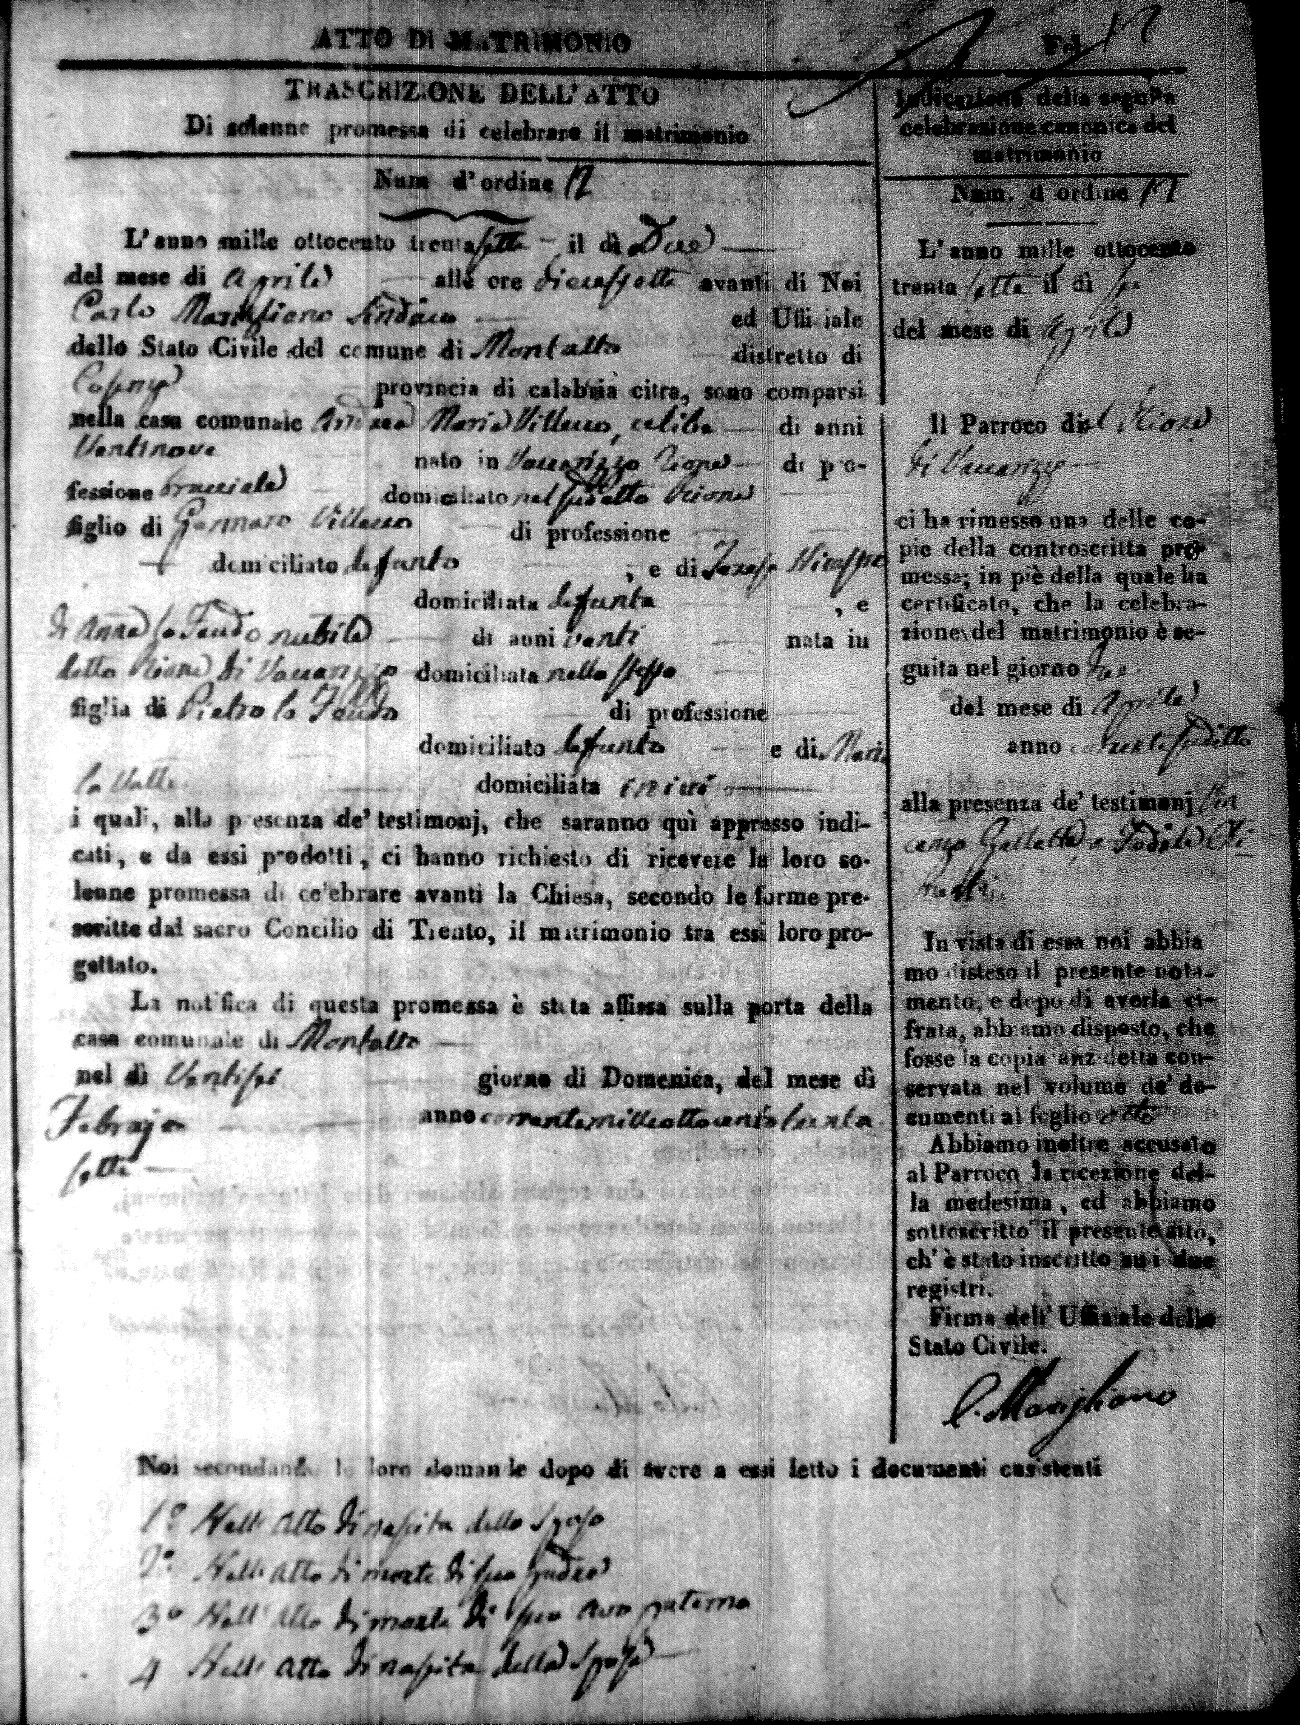 ATTO DI MATRIMONIO
Fol. 17
TRASCRIZIONE DELL'ATTO
Di solenne promessa di celebrare il matrimonio
Num d'ordine 17
L'anno mille ottocento trentasette il dì Due
del mese di Aprile alle ore diciassette avanti di Noi
Carlo Marigliano Sindaco ed Uffiziale
dello Stato Civile del comune di Montalto distretto di
Cosenza provincia di calabria citra, sono comparsi
nella casa comunale Andrea Maria Villecco, celibe di anni
Ventinove nato in Vaccarizzo Rione di pro-
fessione bracciale domiciliato nel sudetto Rione
figlio di Gennaro Villecco di professione
domiciliato defunto, e di
domiciliata defunta, e
di Anna lo Feudo nubile di anni venti nata in
detto Rione di Vaccarizzo domiciliata nello stesso
figlia di Pietro lo Feudo di professione
domiciliato defunto e di Maria
la Valle domiciliata
i quali, alla presenza de' testimonj, che saranno quì appresso indi-
cati, e da essi prodotti, ci hanno richiesto di ricevere la loro so-
lenne promessa di celebrare avanti la Chiesa, secondo le forme pre-
scritte dal sacro Concilio di Trento, il matrimonio tra essi loro pro-
gettato.
La notifica di questa promessa è stata affissa sulla porta della
casa comunale di Montalto
nel dì Ventisei giorno di Domenica, del mese di
Febrajo anno corrente milleottocentotrenta
sette
Indicazione della seguita
celebrazione canonica del
matrimonio
Num. d'ordine 17
L'anno mille ottocento
trenta sette il dì
del mese di Aprile
Il Parroco del Rione
di Vaccarizzo
ci ha rimesso una delle co-
pie della controscritta pro-
messa; in piè della quale ha
certificato, che la celebra-
zione del matrimonio è se-
guita nel giorno
del mese di Aprile
anno sudetto
alla presenza de' testimonj
In vista di essa noi abbia
mo disteso il presente nota-
mento, e dopo di averla ci-
frata, abbiamo disposto, che
fosse la copia anzidetta con-
servata nel volume de' do-
cumenti al foglio
Abbiamo inoltre accusato
al Parroco la ricezione del-
la medesima, ed abbiamo
sottoscritto il presente atto,
ch' è stato inscritto sui due
registri.
Firma dell' Uffiziale dello
Stato Civile.
C. Marigliano
Noi secondando le loro domande dopo di avere a essi letto i documenti consistenti
1° Nell'Atto di nascita dello Sposo
2° Nell'Atto di morte di suo Padre
3° Nell'Atto di morte di suo Avo paterno
4 Nell'Atto di nascita della Sposa